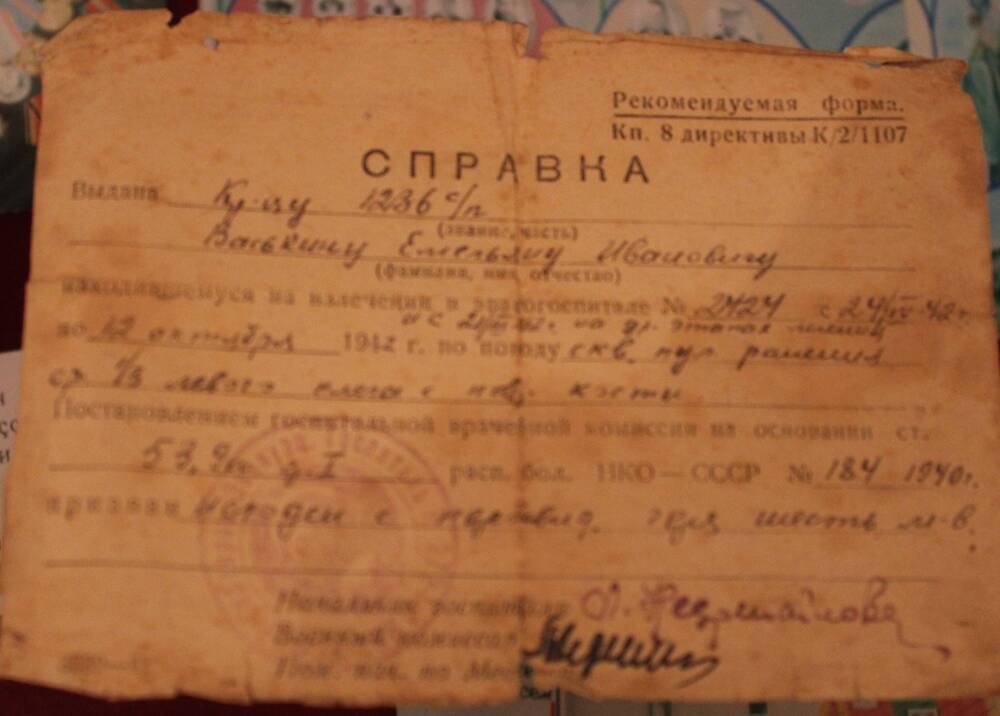 Рекомендуемая форма.
Кп. 8 директивы К/2/1107
СПРАВКА
Выдана Кр-цу 1236 с/п
(звание, часть)
Васькину Емельяну Ивановичу
(фамилия, имя, отчество)
находившемуся на излечении в эвакогоспитале № 2424 с 24/IV-42 г.
и с на др. этапах
по 12 октября 1942 г. по поводу скв. пул. ранения
ср 1/3 левого с пов. кости
Постановлением госпитальной врачебной комиссии на основании ст.
53 расп. бол. НКО — СССР № 184 1940 г.
признан Негоден с через шесть м-в.
Начальник госпиталя
Военный комиссар